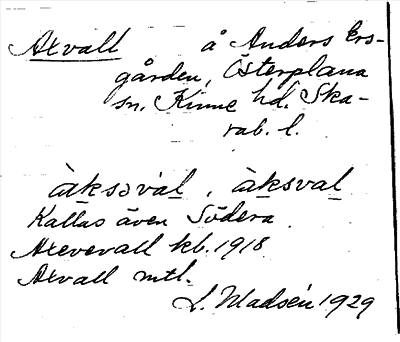 Axvall å Anders Ers-
gården, Österplana
sn. Kinne hd. Ska-
rab. l.
àksəvàl, àksval
Kallas även Södera
Axevevall kb. 1918
Axvall mtl.
L. Madsén 1929